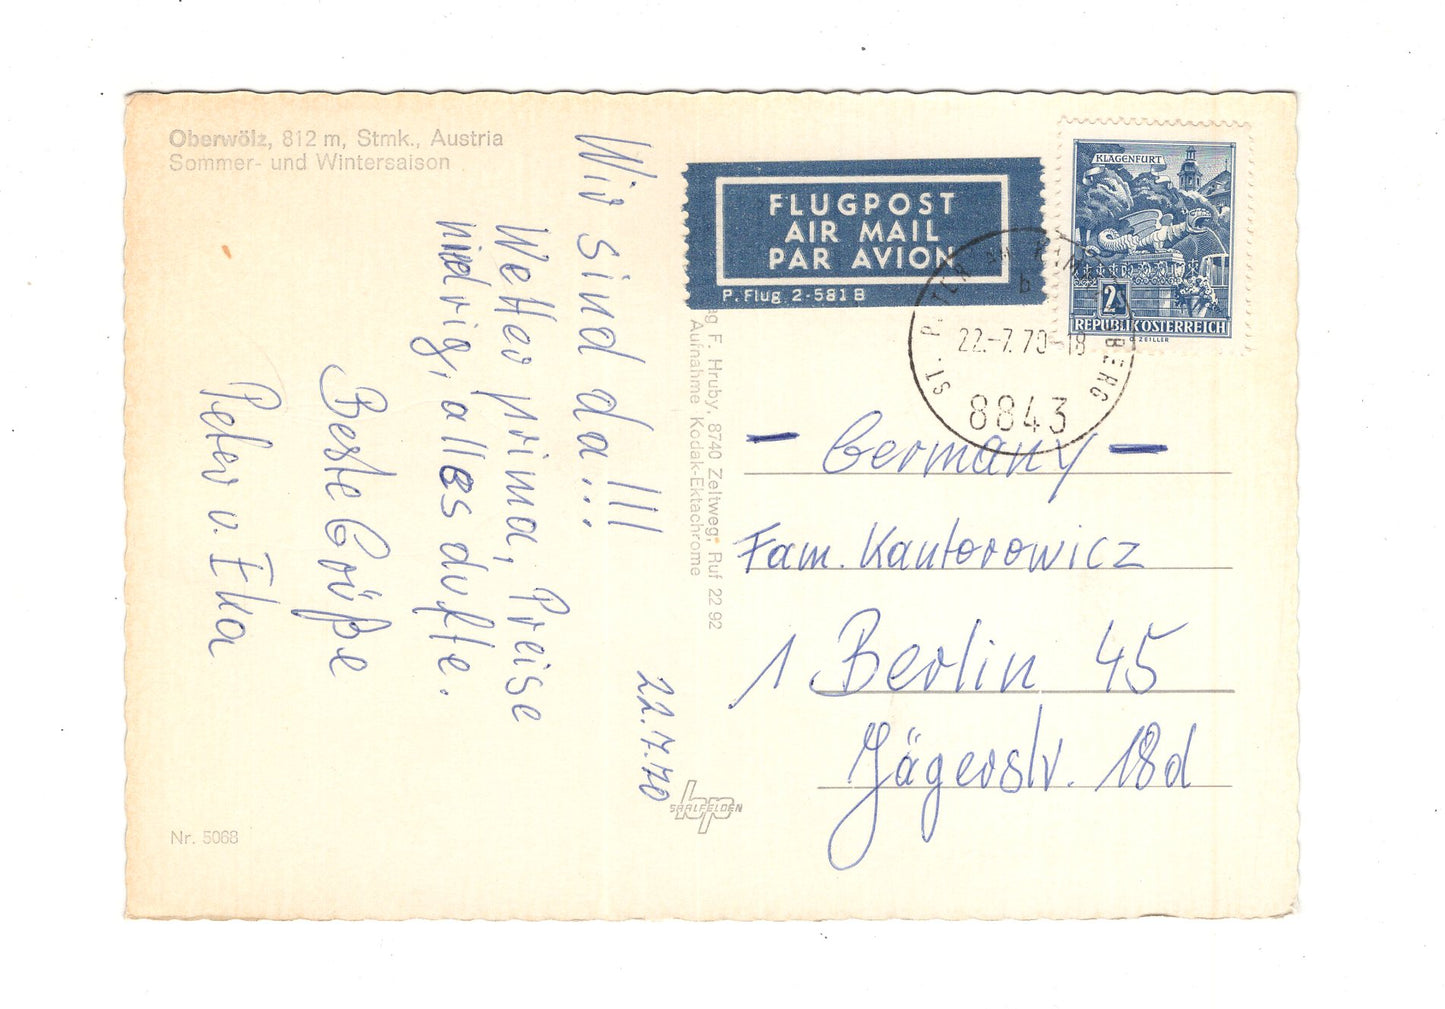 Oberwölz, 812 m, Stmk., Austria
Sommer- und Wintersaison
Wir sind da...!!!
Wetter prima, Preise
niedrig, alles dufte.
Beste Grüße
Peter u. Ika
22.7.70
Nr. 5068
F. Hruby, 8740 Zeltweg, Ruf 22 92
Aufnahme Kodak-Ektachrome
bp
SAALFELDEN
FLUGPOST
AIR MAIL
PAR AVION
P. Flug 2-581 B
KLAGENFURT
2S
REPUBLIK ÖSTERREICH
O. ZEILLER
ST. PETER AM KAMMERSBERG
b
22.-7.70-18
8843
- Germany -
Fam. Kantorowicz
1 Berlin 45
Jägerstr. 18d